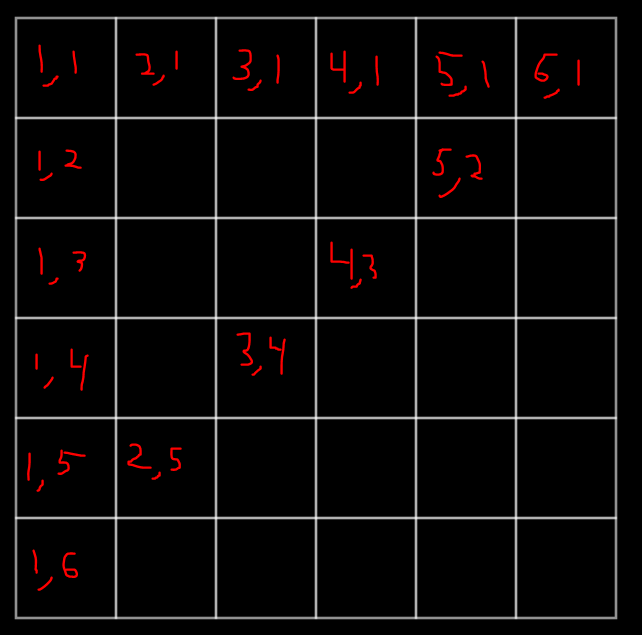 1,1 2,1 3,1 4,1 5,1 6,1
1,2 5,2
1,3 4,3
1,4 3,4
1,5 2,5
1,6